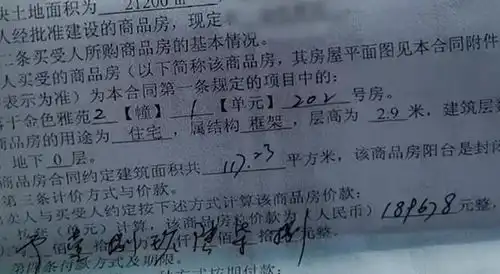 块土地面积为 21200 ㎡
人经批准建设的商品房，现定
二条买受人所购商品房的基本情况。
人买受的商品房（以下简称该商品房，其房屋平面图见本合同附件
表示为准）为本合同第一条规定的项目中的：
于金色雅苑2 【幢】 1 【单元】 202 号房。
商品房的用途为 住宅 ，属结构 框架 ，层高为 2.9 米，建筑层
，地下 0 层。
商品房合同约定建筑面积共 117.23 平方米，该商品房阳台是封
第三条计价方式与价款。
卖人与买受人约定按下述方式计算该商品房价款：
按套（单元）计算，该商品房总价款为（人民币）189678元整，
佰 拾 万 仟 佰 拾 元整。
第四条付款方式及期限。
方式按期付款：